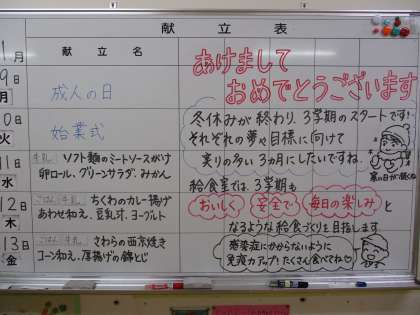 献立表
1月
献立名
9日
月
成人の日
10日
火
始業式
11日
水
牛乳 ソフト麺のミートソースがけ
卵ロール、グリーンサラダ、みかん
12日
木
ごはん 牛乳 ちくわのカレー揚げ
あわせ和え、豆乳汁、ヨーグルト
13日
金
ごはん 牛乳 さわらの西京焼き
コーン和え、厚揚げの錦とじ
あけまして
おめでとうございます
冬休みが終わり、3学期のスタートです!
それぞれの夢や目標に向けて
実りの多い3ヵ月にしたいですね。
給食室では、3学期も
おいしく 安全で 毎日の楽しみ と
なるような給食づくりを目指します
感染症にかからないように
免疫力アップ!たくさん食べてね